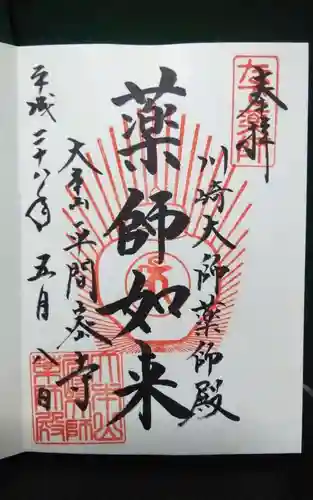 奉拝
川崎大師薬師殿
薬師如来
大本山平間寺
平成二十八年五月八日